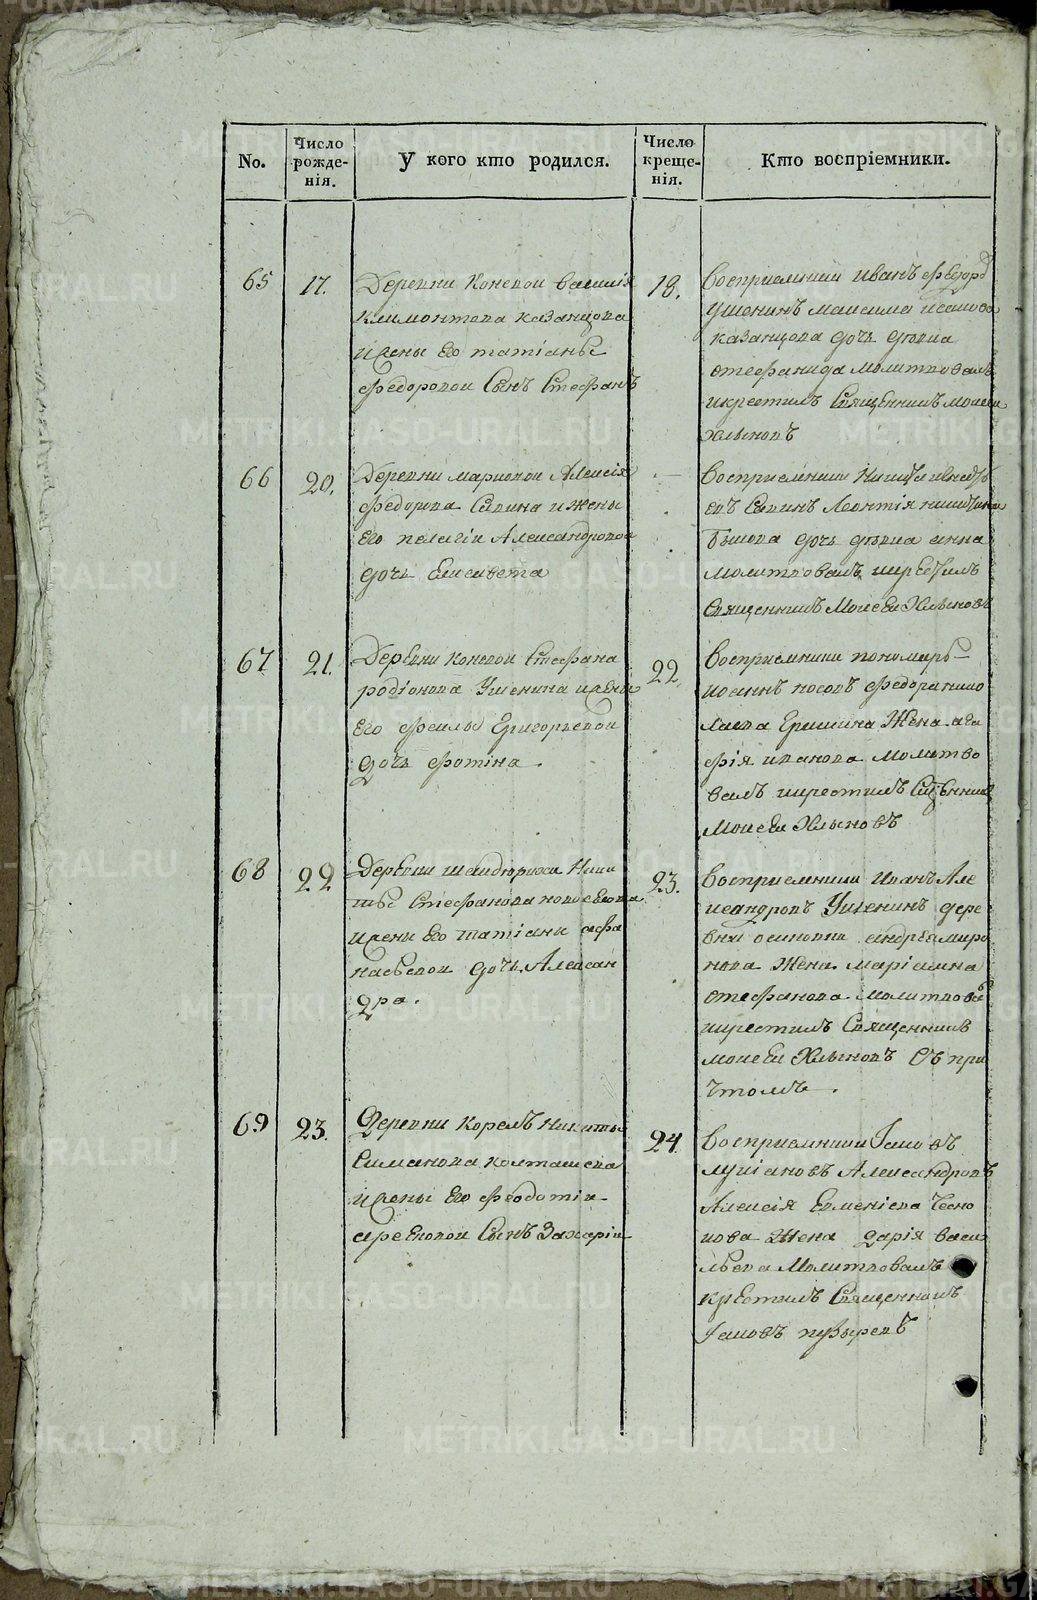 No.
Число рожденія.
У кого кто родился.
Число крещенія.
Кто воспріемники.
65
17.
Деревни Коневой василія
климонтова казанцова
ижены его татіаны
федоровой Сынъ Стефанъ
18.
Воспріемники иванъ федоръ
Ушенинъ
казанцова дочь девица
стефанида молитвовалъ
икрестилъ Священникъ моисей
Хлыновъ
66
20.
Деревни мариновой Алексія
федорова Савина ижены
его пелагіи Александровой
дочь Елисавета
—
Воспріемники
евъ Савинъ Леонтія
Бѣлова дочь девица анна
молитвовалъ икрестилъ
Священникъ Моисей Хлыновъ
67
21.
Деревни коневой Стефана
родіонова Ушенина ижены
его феклы Григорьевой
Дочь фотина.
22.
Воспріемники пономарь
иоаннъ носовъ федора нико
лаева Еришина Жена ага
фія иванова молитво
валъ икрестилъ Священникъ
Моисей Хлыновъ
68
22
Деревни шандюриха Ники
ты Стефанова новоселова
ижены его татіаны афа
насьевой дочь Алексан
дра.
23.
Воспріемники иванъ Але
ксандровъ Ушенинъ дере
вни осиновки андрея миро
нова жена маріамна
стефанова молитвова
икрестилъ Священникъ
моисей Хлыновъ Съ при
чтомъ.
69
23.
Деревни корелъ Никиты
Симанова колташева
ижены его феодотіи
арефьевой Сынъ Захарій
24.
Воспріемники Іаковъ
лукіановъ Александровъ
Алексія Евменіева Чесно
кова жена дарія васи
льева Молитвовалъ
крестилъ Священникъ
Іаковъ пузыревъ